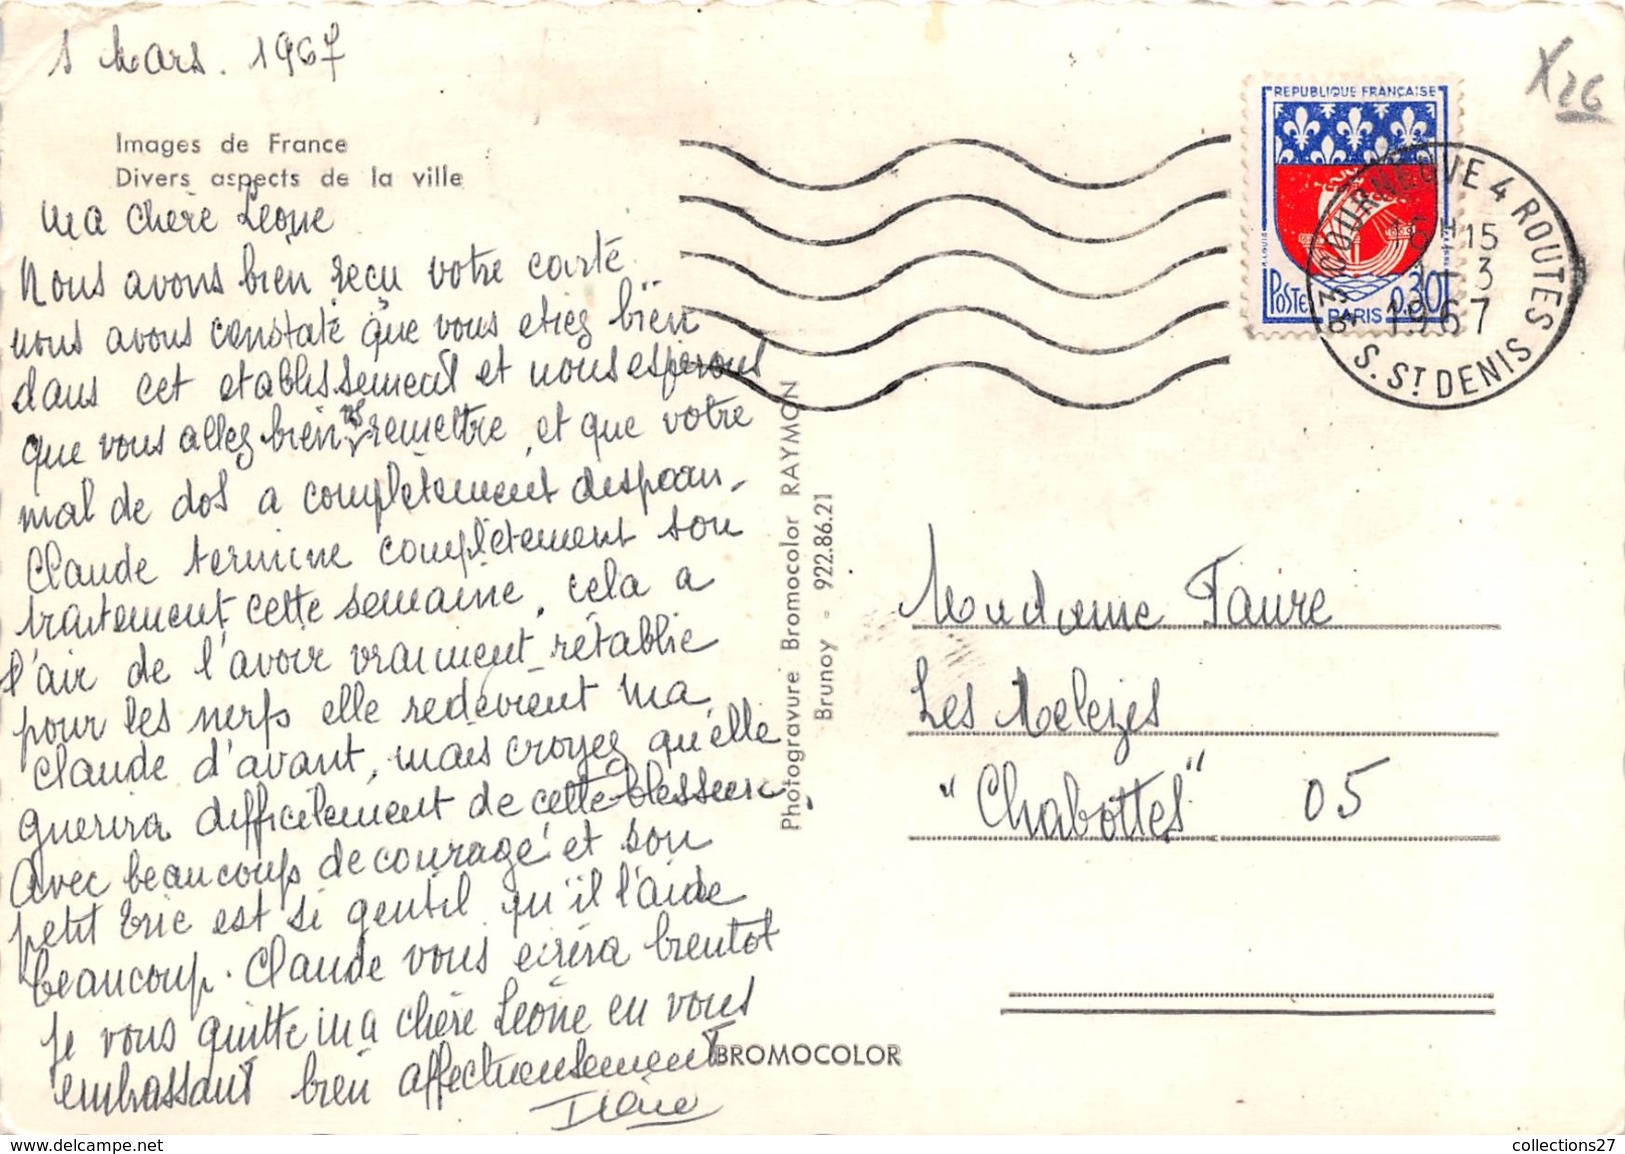 1 Mars. 1967
X26
Images de France
Divers aspects de la ville
Ma chère Léone
Nous avons bien reçu votre carte
nous avons constaté que vous etiez bien
dans cet etablissement et nous esperons
que vous allez bien vs remettre, et que votre
mal de dos a complètement disparu.
Claude termine complètement son
traitement cette semaine, cela a
l'air de l'avoir vraiment rétablie
pour les nerfs elle redevient ma
Claude d'avant, mais croyez qu'elle
guerira difficilement de cette blessure.
Avec beaucoup de courage et son
petit Eric est si gentil qu'il l'aide
beaucoup. Claude vous ecrira bientot
je vous quitte ma chère Léone en vous
embrassant bien affectueusement
REPUBLIQUE FRANÇAISE
POSTES 0,30F
PARIS
93 LA COURNEUVE 4 ROUTES
S. ST DENIS
16H15
1-3
1967
Photogravure Bromocolor RAYMON
Brunoy - 922.86.21
Madame Faure
Les Melezes
"Chabottes" 05
BROMOCOLOR
collections27